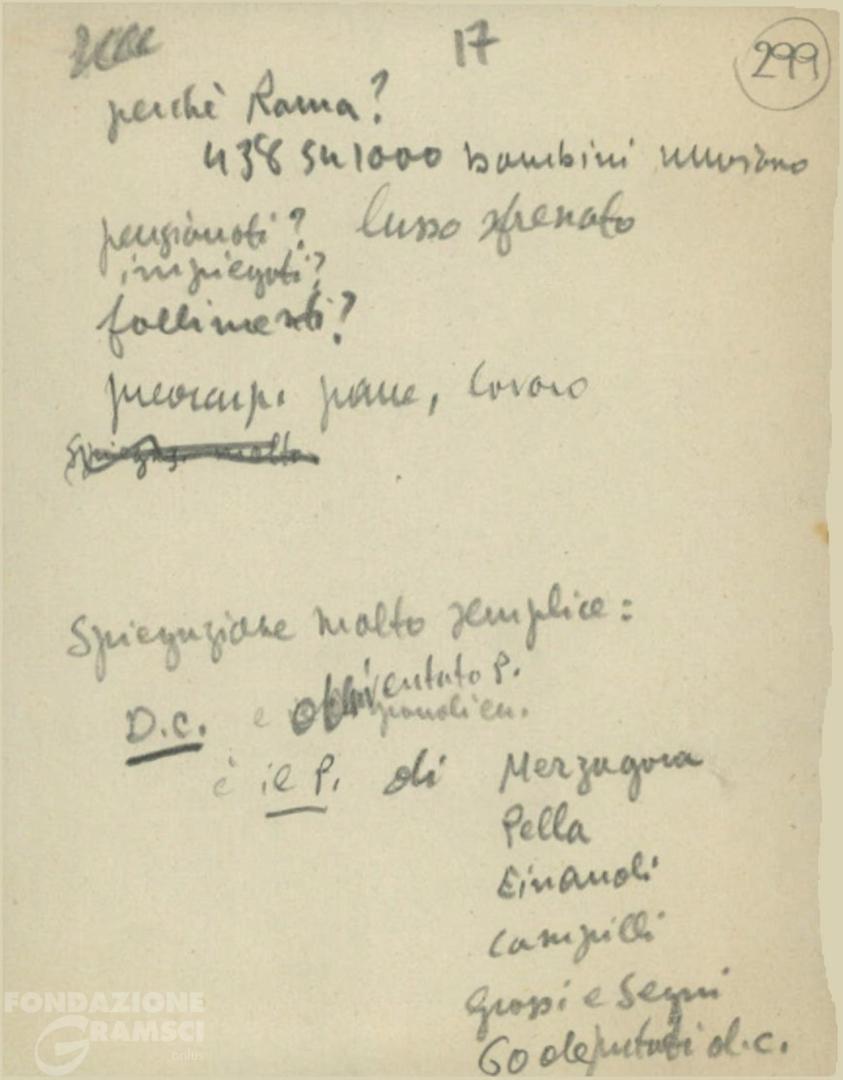 17
299
perchè Roma?
438 su 1000 bambini muoiono
pensionati? lusso sfrenato
impiegati?
fallimenti?
preoccup. pane, lavoro
Spiegaz. molto
Spiegazione molto semplice:
D.c. e diventato P.
grandi en.
è il P. di Merzagora
Pella
Einaudi
Campilli
Grossi e Segni
60 deputati d.c.
FONDAZIONE
GRAMSCI
onlus